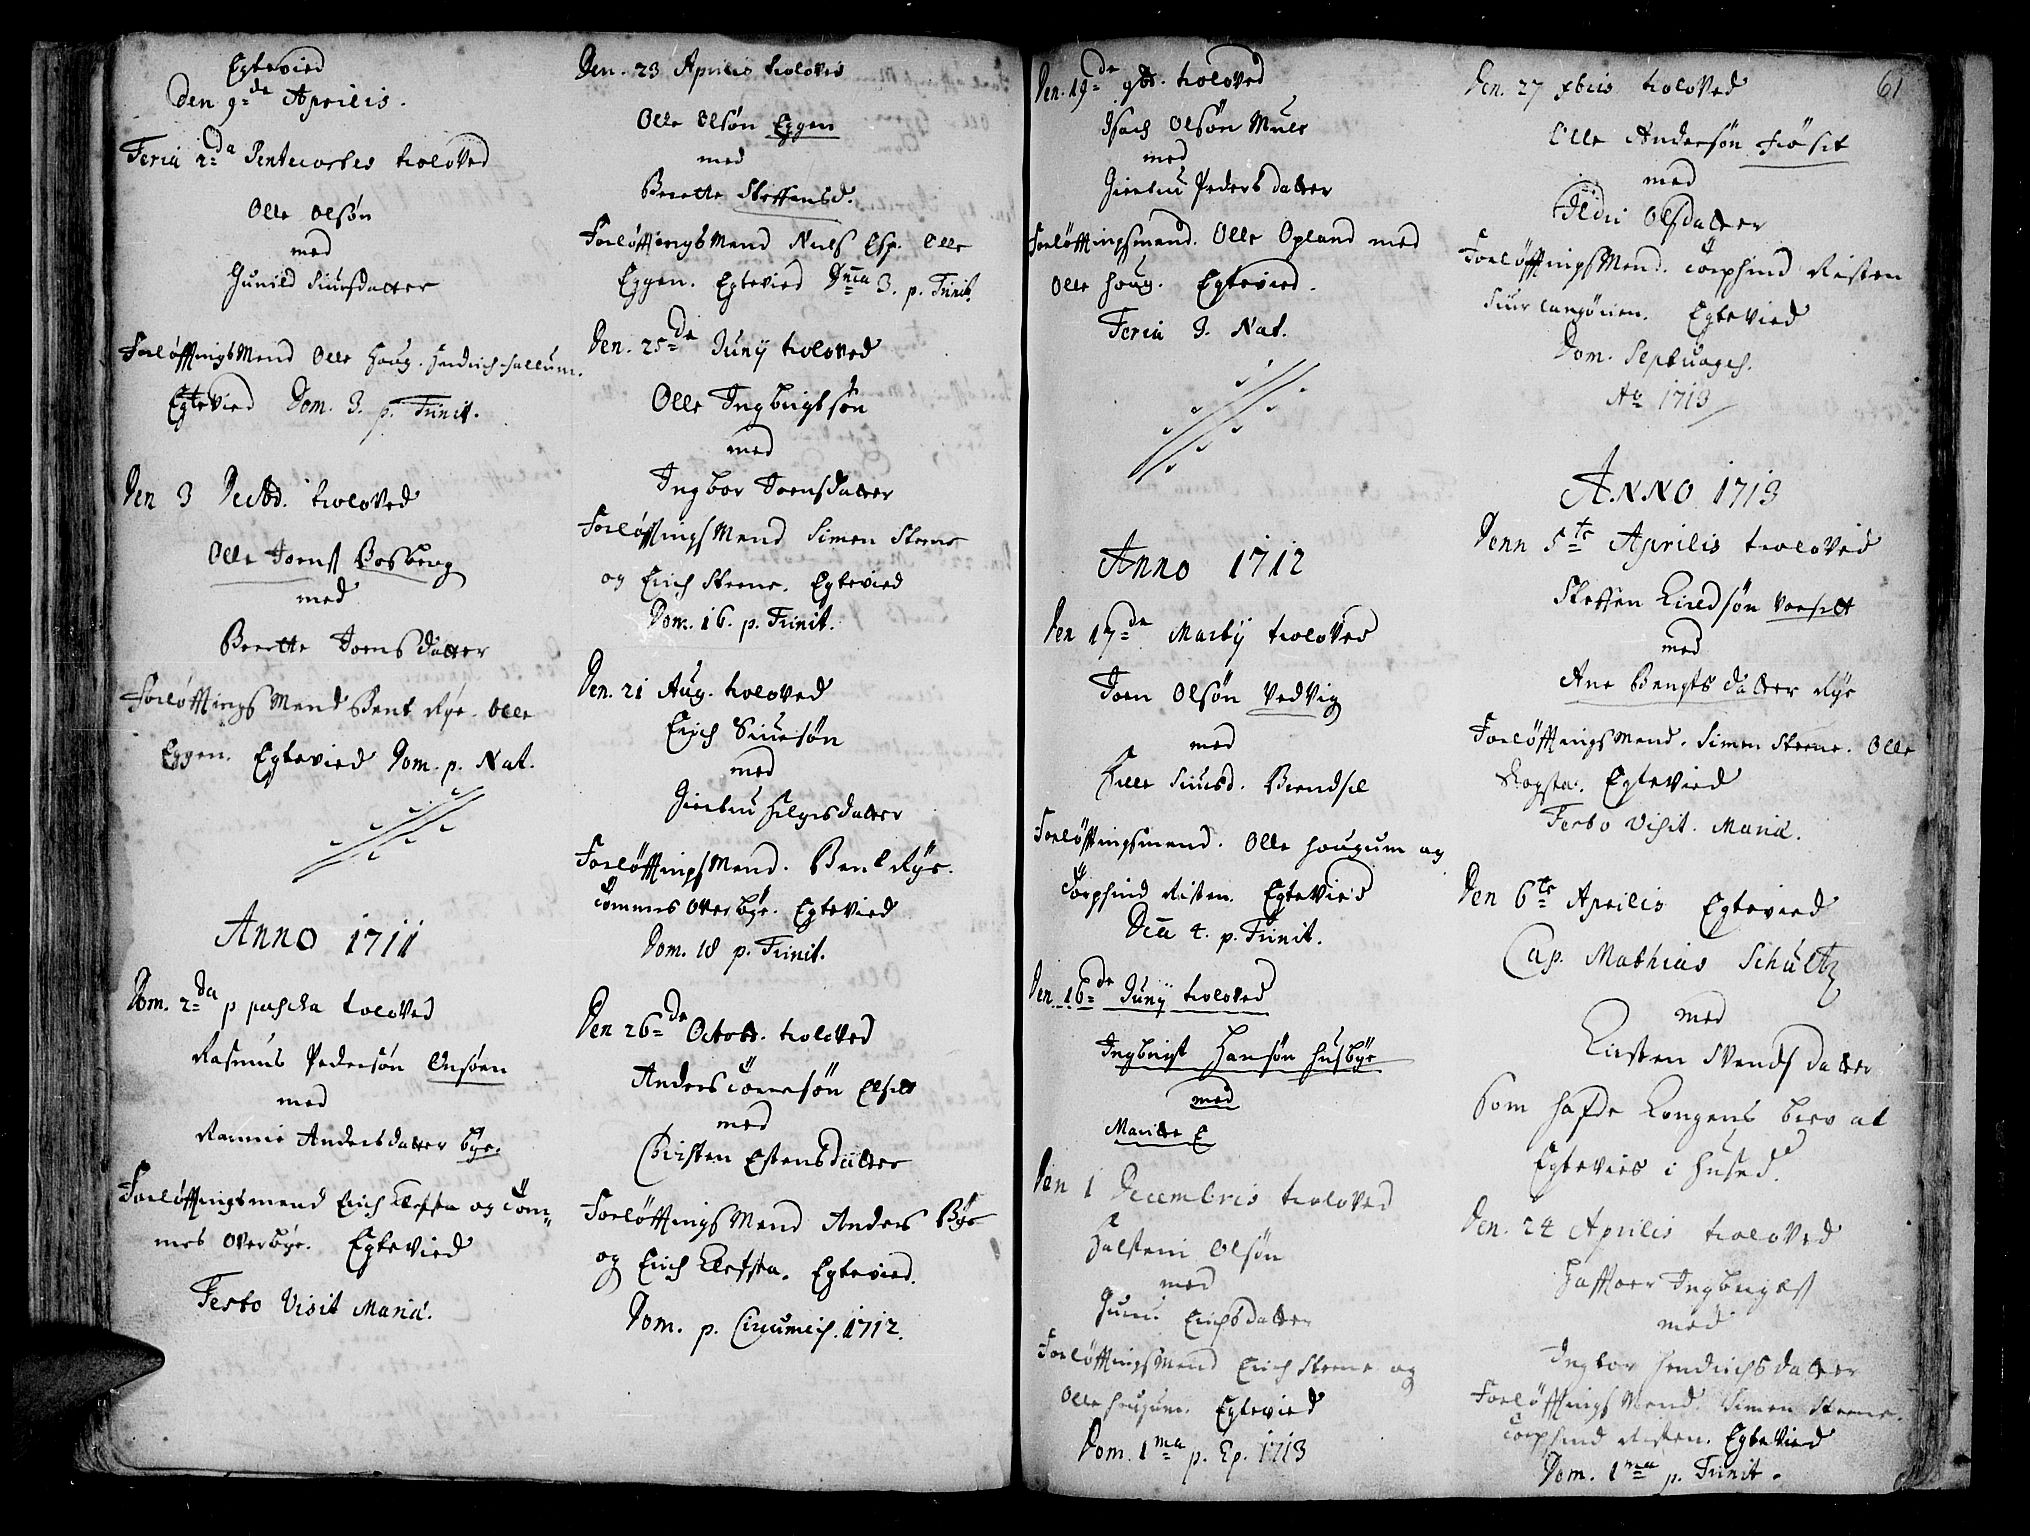 Egtevied
Den 9de Aprilis.
Feria 2da Pentecostes troloved
Olle Olsøn
med
Gunild Siursdatter
Forløffningsmend Olle Houg. Hendrich Hallum.
Egtevied Dom. 3. p. Trinit.
Den 3 Decbr. troloved
Olle Joens Bosberg
med
Berette Joensdatter
Forløffningsmend Bent Rye. Olle
Eggen. Egtevied Dom. p. Nat.
Anno 1711
Dom. 2da p pascha troloved
Rasmus Pedersøn
med
Rannie Andersdatter bye.
Forløffningsmend Erich Kleffsta og Tom-
mes Overbye. Egtevied
Festo Visit Mariæ.
Den. 23 Aprilis troloved
Olle Olsøn Eggen
med
Berette Steffensd.
Forløffningsmend Niels Esp. Olle
Eggen. Egtevied Dnica 3. p. Trinit.
Den. 25de Junij troloved
Olle Ingbrigtsøn
med
Ingbor Joensdatter
Forløffningsmend Simen Steene
og Erich Steene. Egtevied
Dom. 16. p. Trinit.
Den. 21 Aug. troloved
Erich Siursøn
med
Giertru Helgesdatter
Forløffningsmend. Bent Rye.
Tommes Overbye. Egtevied
Dom. 18 p. Trinit.
Den 26de Octobr. troloved
Anders Tommesøn Elset
med
Christen Estensdatter
Forløffningsmend Anders Bye
og Erich Kleffsta. Egtevied.
Dom. p. Circumcis. 1712.
Den. 19de 9br. troloved
Isach Olsøn Mule
med
Giertru Pedersdatter
Forløffningsmend. Olle Opland med
Olle Houg. Egtevied.
Feria 3. Nat.
Anno 1712
Den 17de Martij troloved
Joen Olsøn Vedvig
med
Sille Siursd. Brendsil
Forløffningsmend. Olle Hougum og
Torphind Risten. Egteviet
Dca 4. p. Trinit.
Den. 16de Junij troloved
Ingbrigt Hansøn Husbye
med
Maritte E
Den 1 Decembris troloved
Halstein Olsøn
med
Guru. Erichsdatter
Forløffningsmend Erich Steene og
Olle Hougum. Egtevied
Dom. 1ma p. Ep. 1713
61
Den. 27 xbris troloved
Olle Andersøn Frøset
med
Ildri Olsdatter
Forløffningsmend. Torphind Risten
Siur Langørien. Egtevied
Dom. Septuages.
Ao 1713
ANNO 1713
Denn 5te Aprilis troloved
Steffen Eindsøn Vorset
med
Ane Bengtsdatter Rye
Forløffningsmend. Simen Steene. Olle
Rogsta. Egtevied
Festo Visit. Mariæ.
Den 6te Aprilis Egteviet
Cap. Mathias Schultz
med
Kirsten Svendsdatter
Som hafde Kongens brev at
Egtevies i Huset.
Den. 24 Aprilis troloved
Haffoer Ingbrigts
med
Ingbor Hendrichsdatter
Forløffningsmend. Simen Steene.
Torphind Risten. Egteviet
Dom. 1ma p. Trinit.